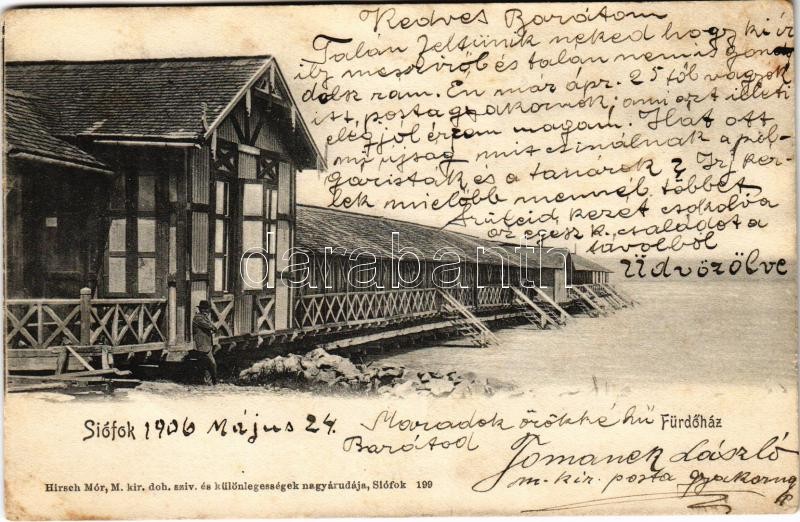 Kedves Barátom
Talán feltünik neked hogy ki ir
ily messziről és talán nem is gon
dolsz rám. Én már ápr. 25 től vagyok
itt, posta gyakornok; ami azt illeti
elég jól érzem magam. Hát ott
mi ujság mit csinálnak a pol
gáristák és a tanárok? Irj kér
lek mielőbb mennél többet
Szüleid kezét csókolva
az egész k. családot a
távolból
Üdvözölve
darabanth
Siófok 1906 Május 24.
Maradok örökké hű
Fürdőház
Barátod
Tomanek László
m. kir. posta gyakornok
Hirsch Mór, M. kir. doh. sziv. és különlegességek nagyárudája, Siófok 199